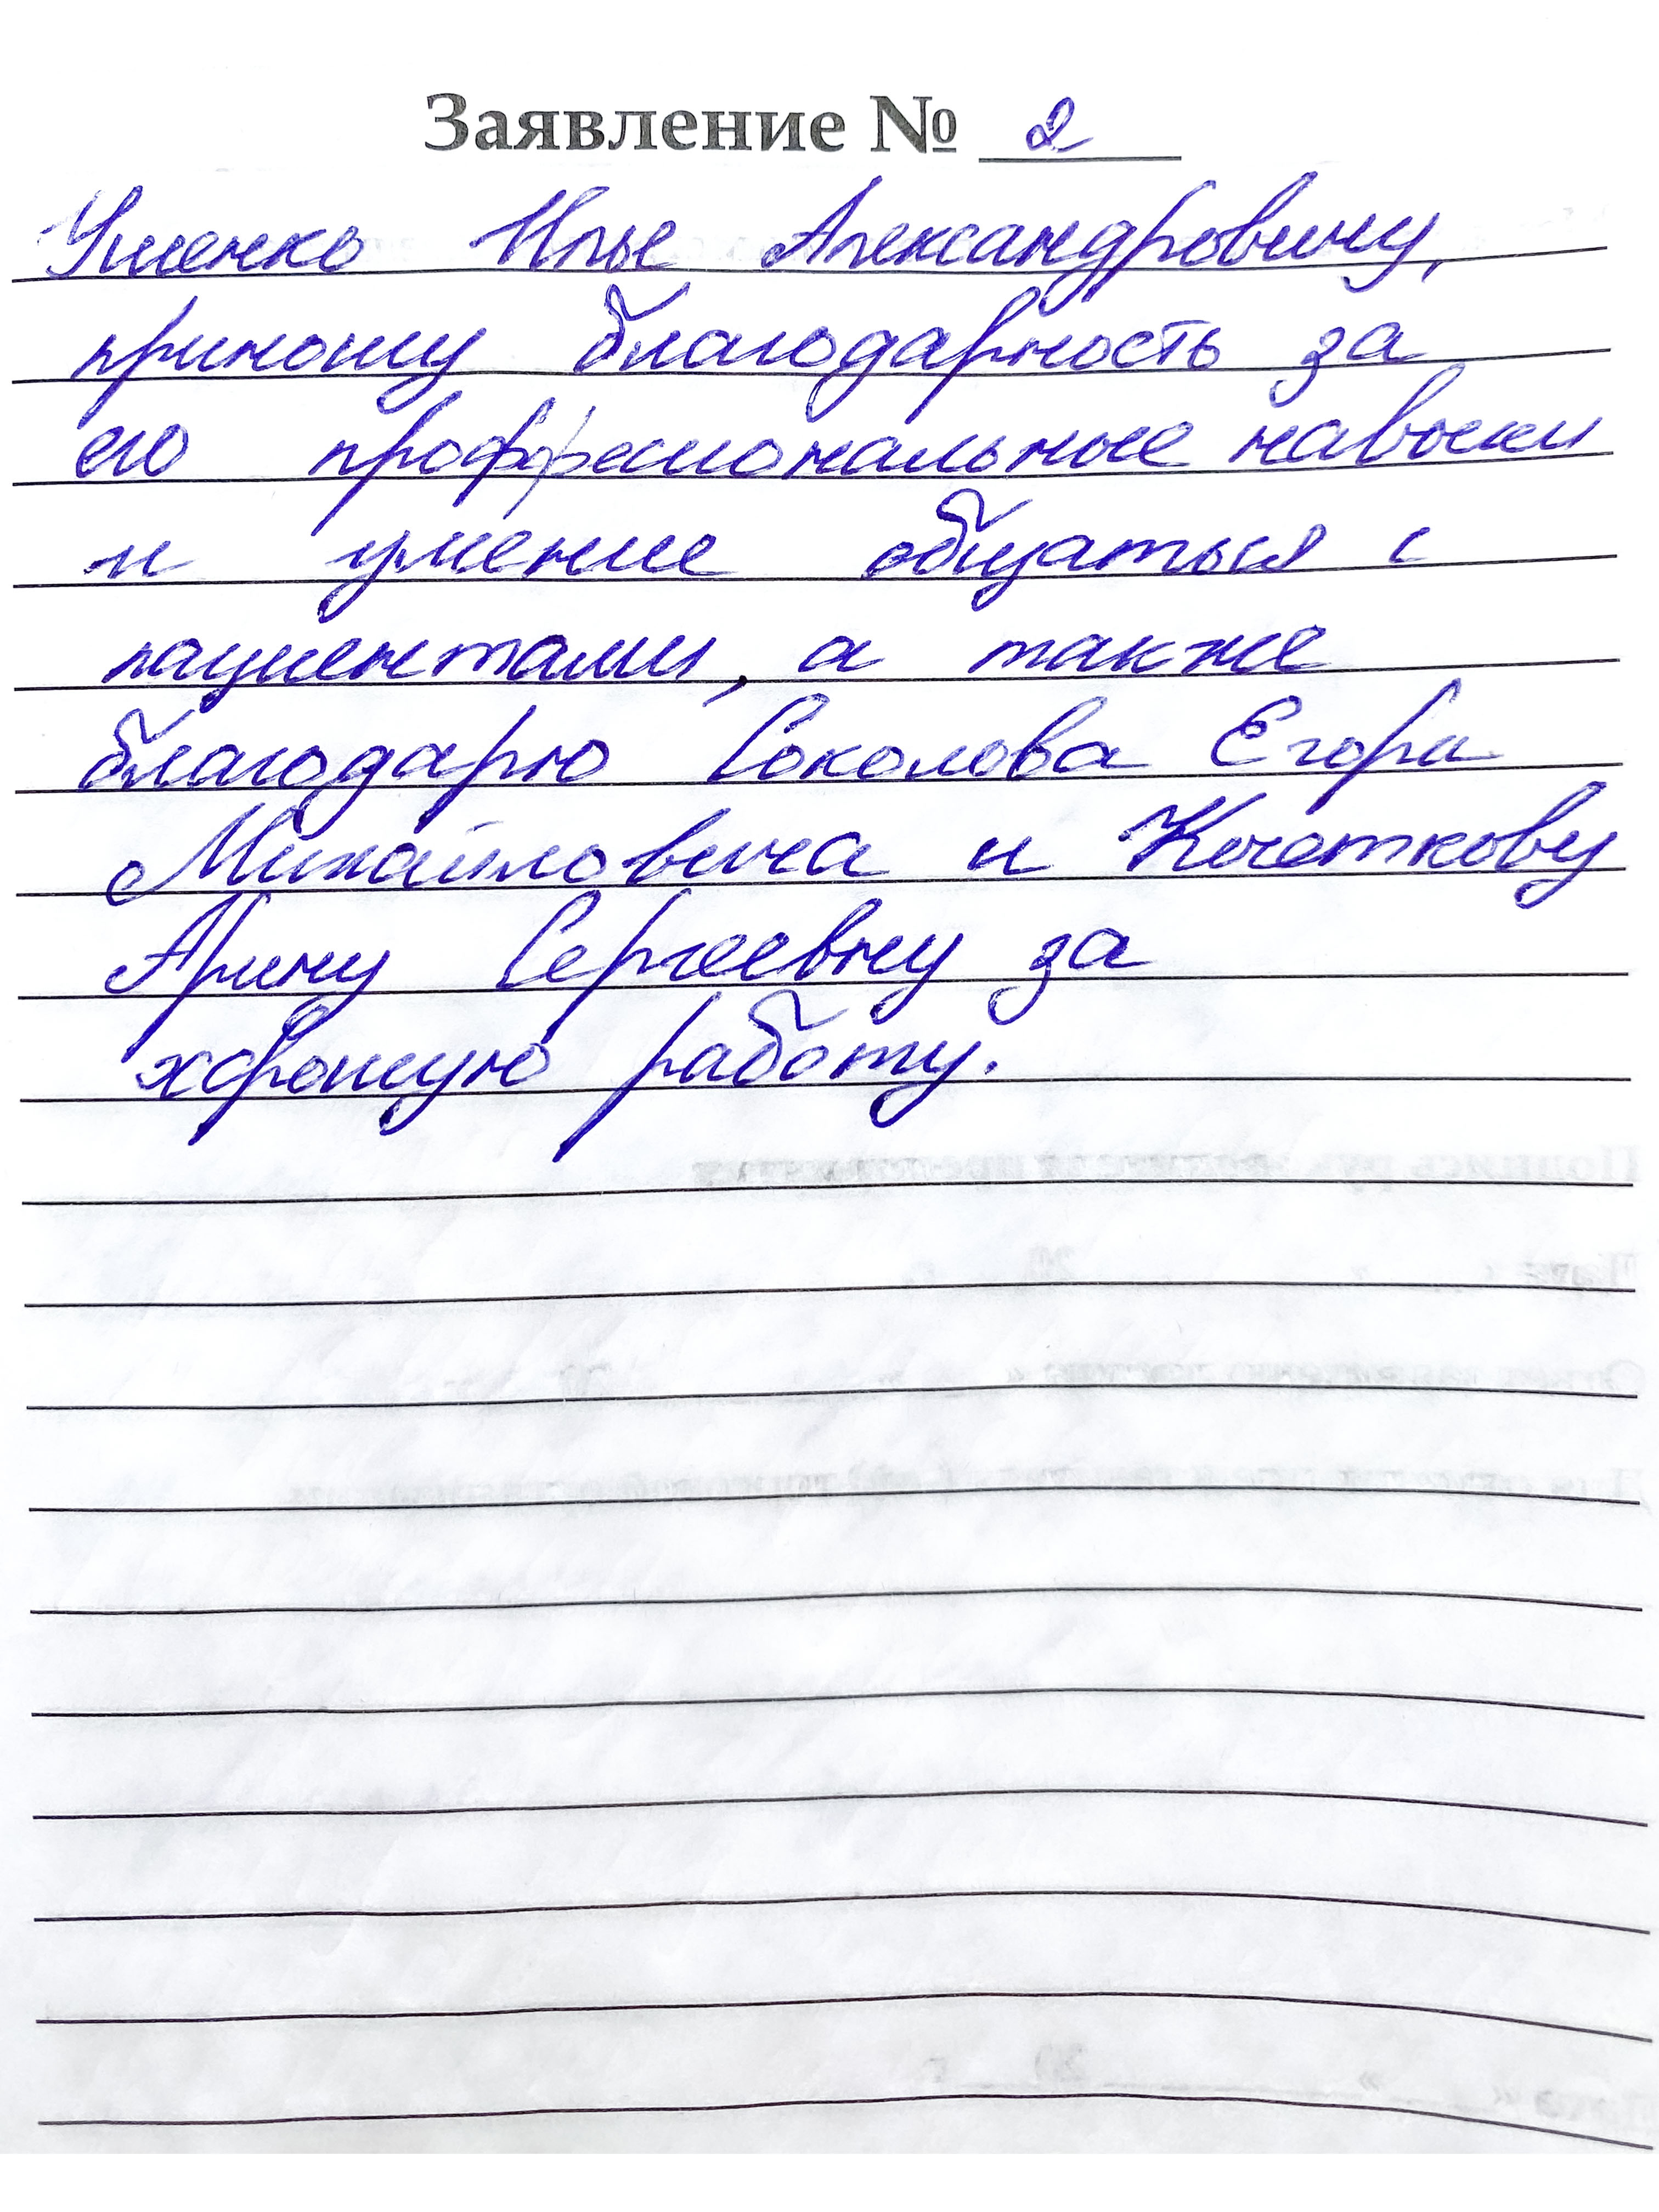 Заявление № 2
Уменко Илье Александровичу,
приношу благодарность за
его проффесиональные навыки
и умение общаться с
пациентами, а также
благодарю Соколова Егора
Михайловича и Кочеткову
Арину Сергеевну за
хорошую работу.